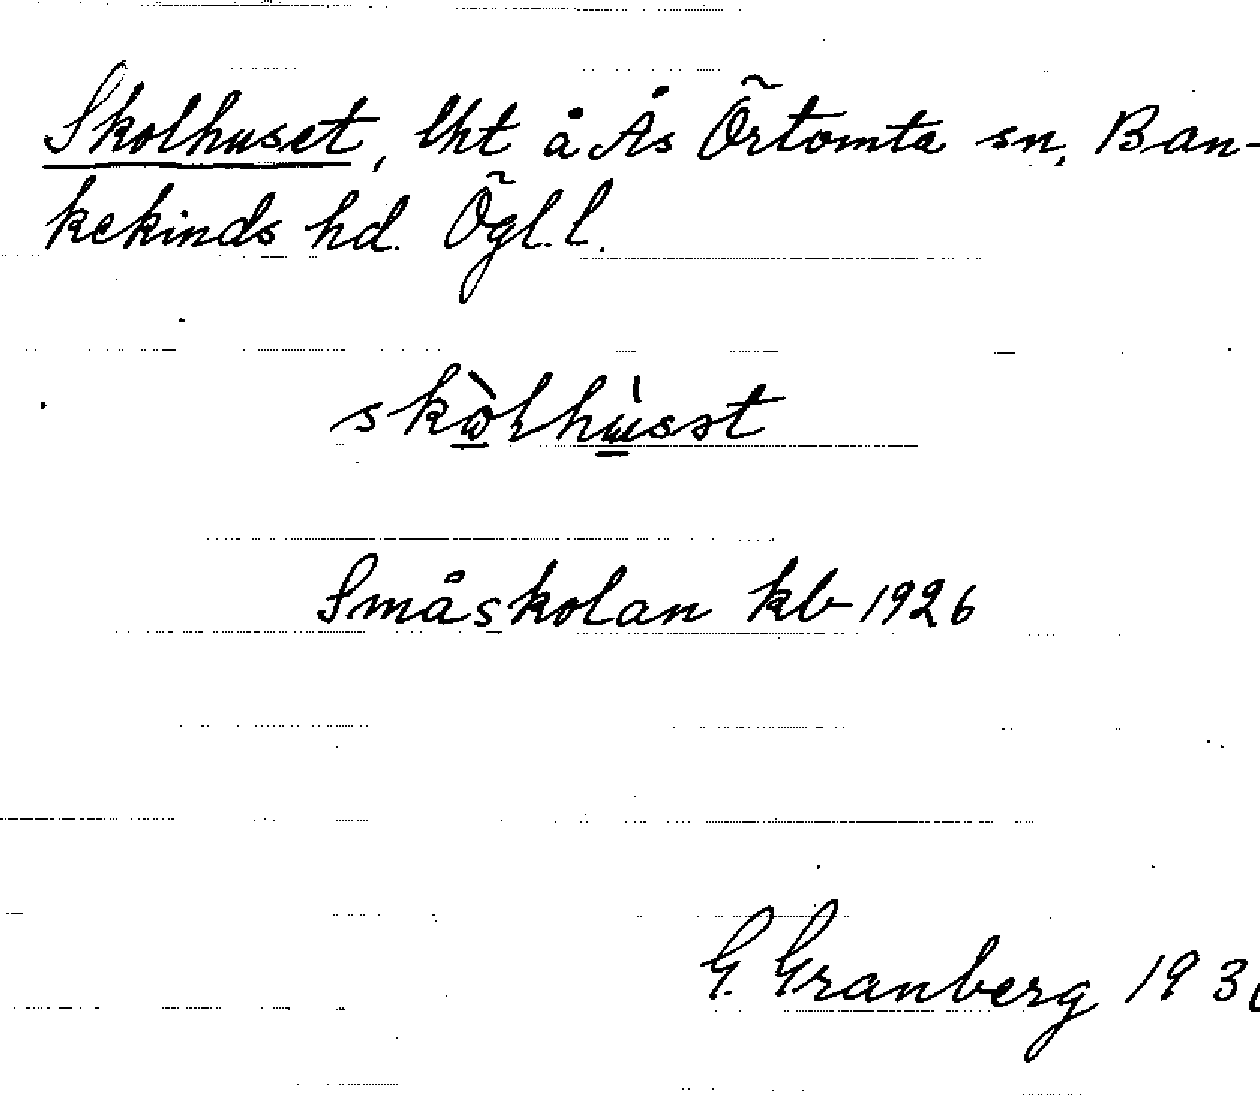 Skolhuset, lht å Ås Örtomta sn, Ban-
kekinds hd. Ögl. l.
Småskolan kb 1926
G. Granberg 193